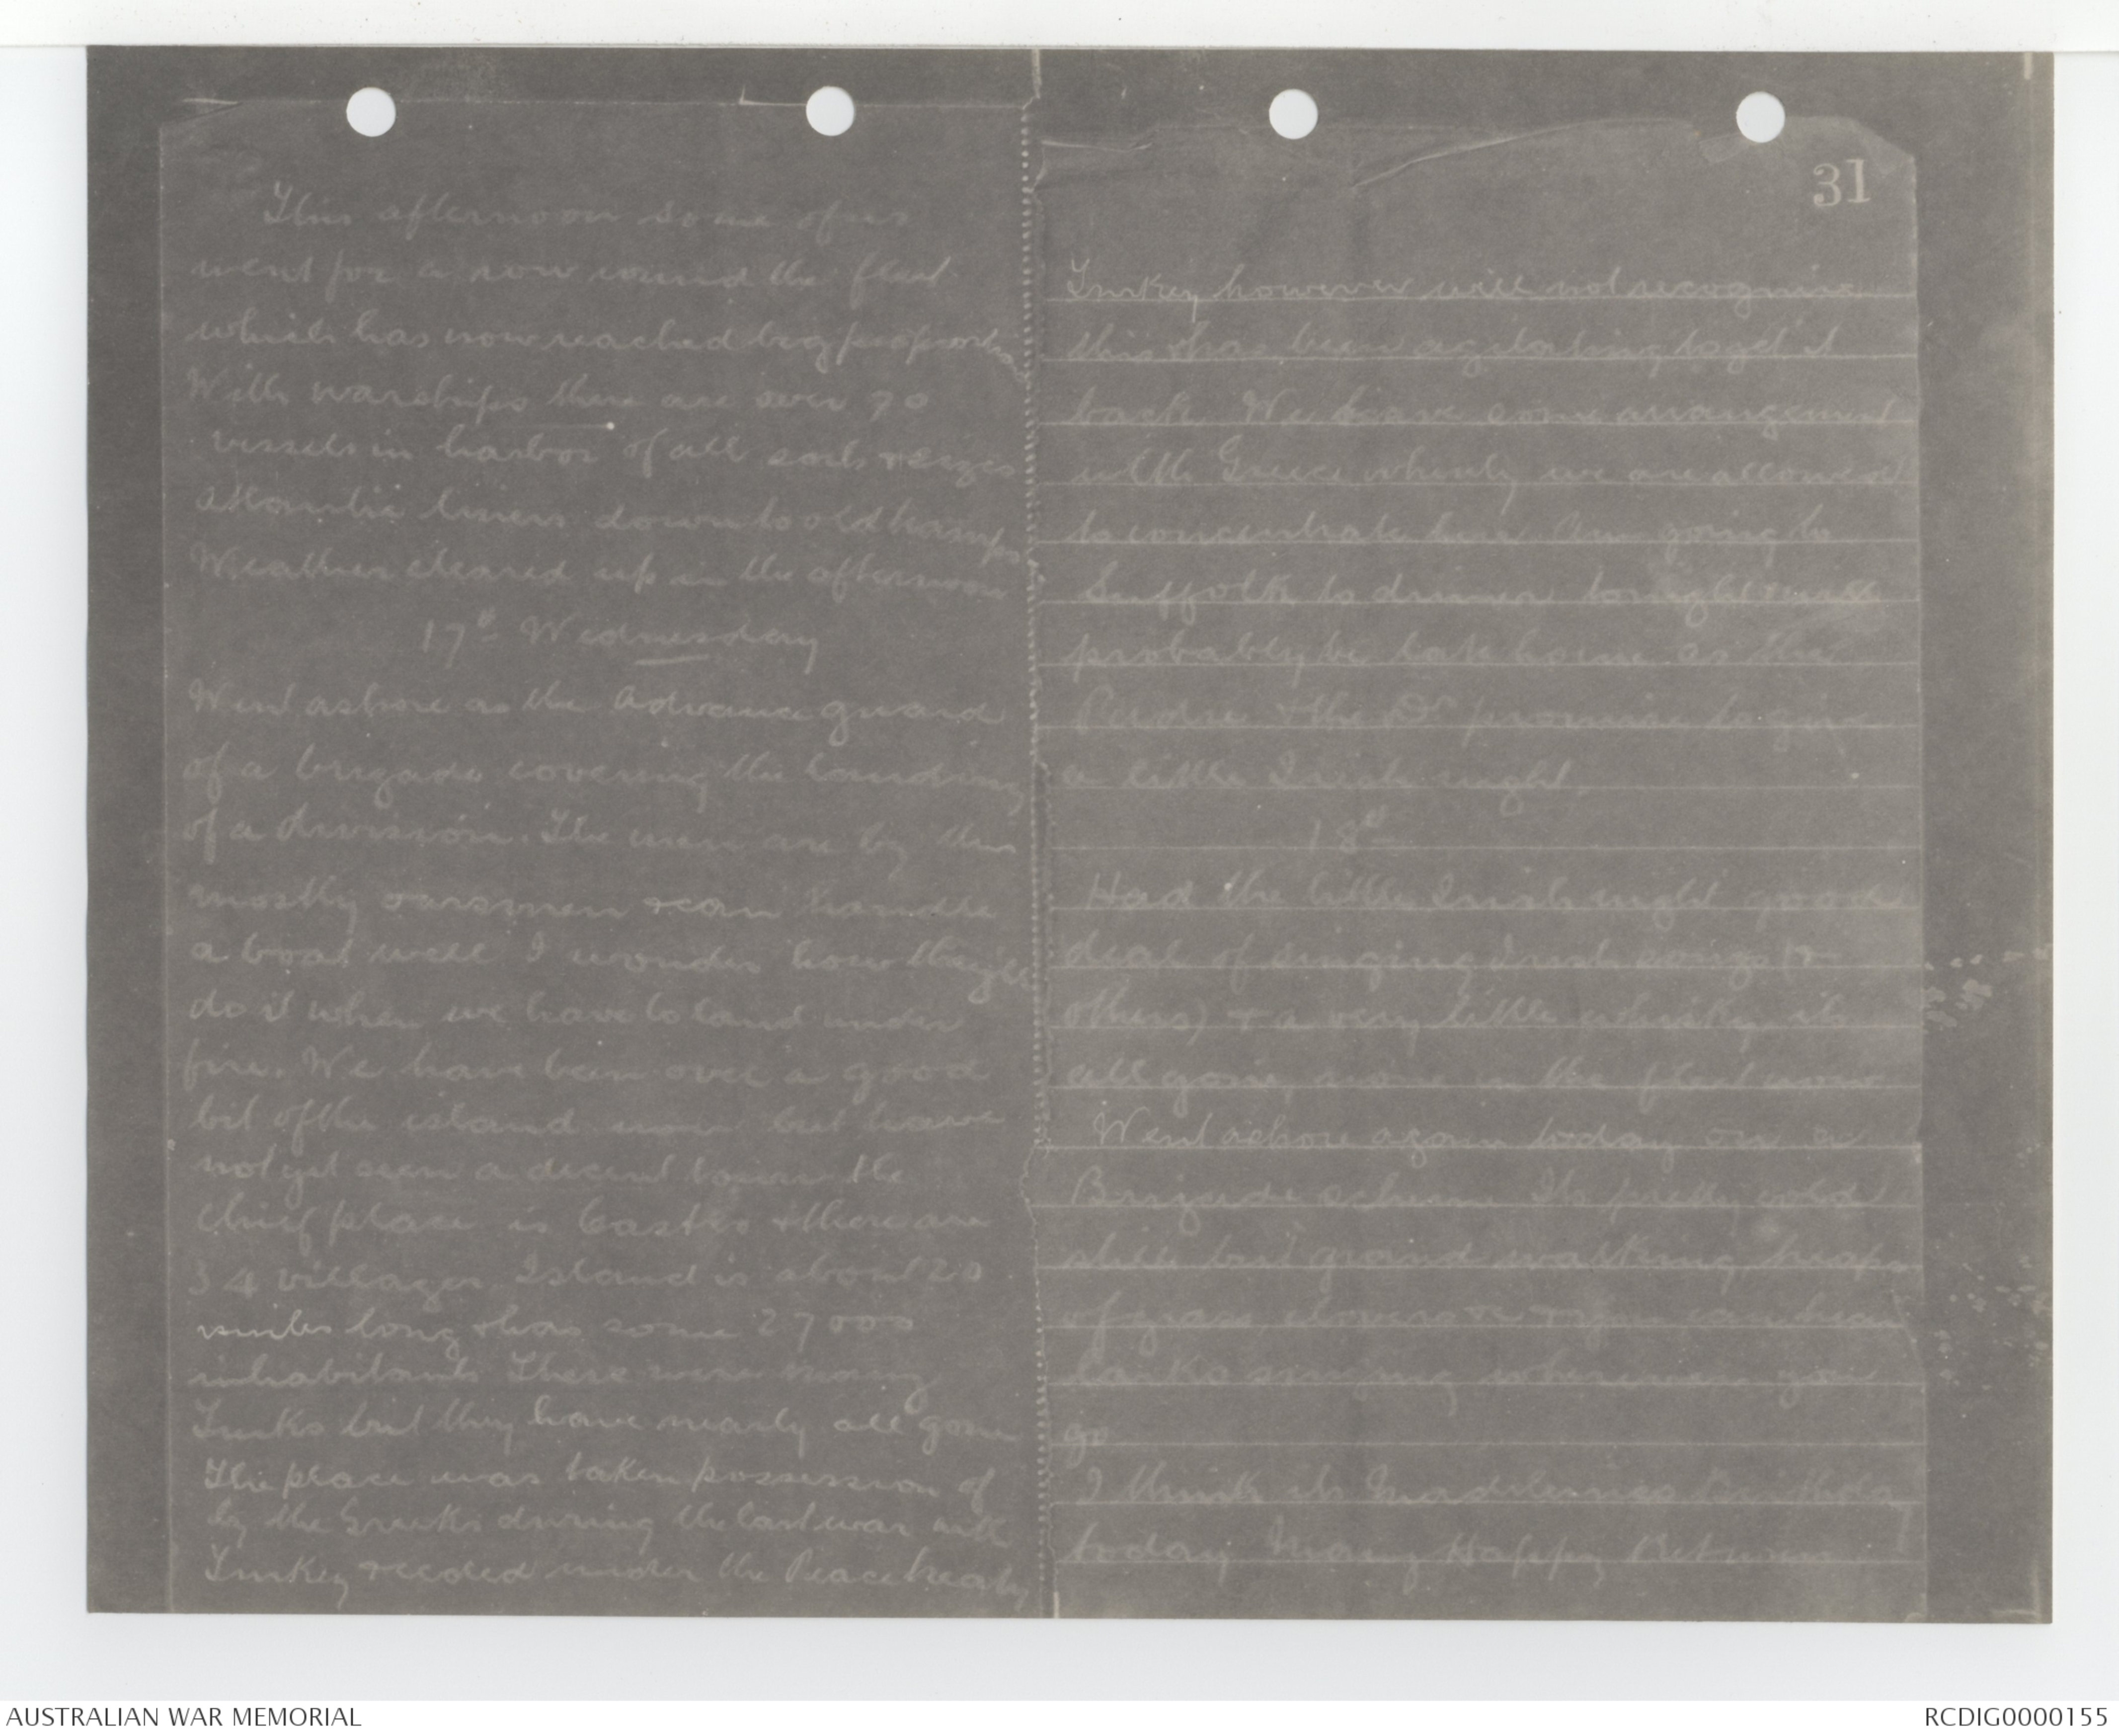 This afternoon some of us
went for a row round the fleet
which has now reached big proportions
With warships there are over 70
vessels in harbor of all sorts & sizes
Atlantic liners down to old tramps
Weather cleared up in the afternoon
17th Wednesday
Went ashore as the advance guard
of a brigade covering the landing
of a division. The men are by this
mostly oarsmen & can handle
a boat well I wonder how they'll
do it when we have to land under
fire. We have been over a good
bit of the island now but have
not yet seen a decent town the
chief place is Castro & there are
34 villages. Island is about 20
miles long & has some 27000
inhabitants There were many
Turks but they have nearly all gone
The place was taken possession of
by the Greeks during the last war with
Turkey & ceded under the Peace treaty
31
Turkey however will not recognise
this & has been agitating to get it
back. We have some arrangement
with Greece whereby we are allowed
to concentrate here Am going to
Suffolk to dinner tonight & will
probably be late home as the
Padre & the Dr promise to give
a little Irish night.
18th
Had the little Irish night good
deal of singing Irish songs (&
others) & a very little whisky its
all gone, none in the fleet now
Went ashore again today on a
Brigade scheme Its pretty cold
still but grand walking, heaps
of grass clovers &c & you can hear
larks singing wherever you
go
I think its Birthday
today Many Happy Returns
AUSTRALIAN WAR MEMORIAL
RCDIG0000155